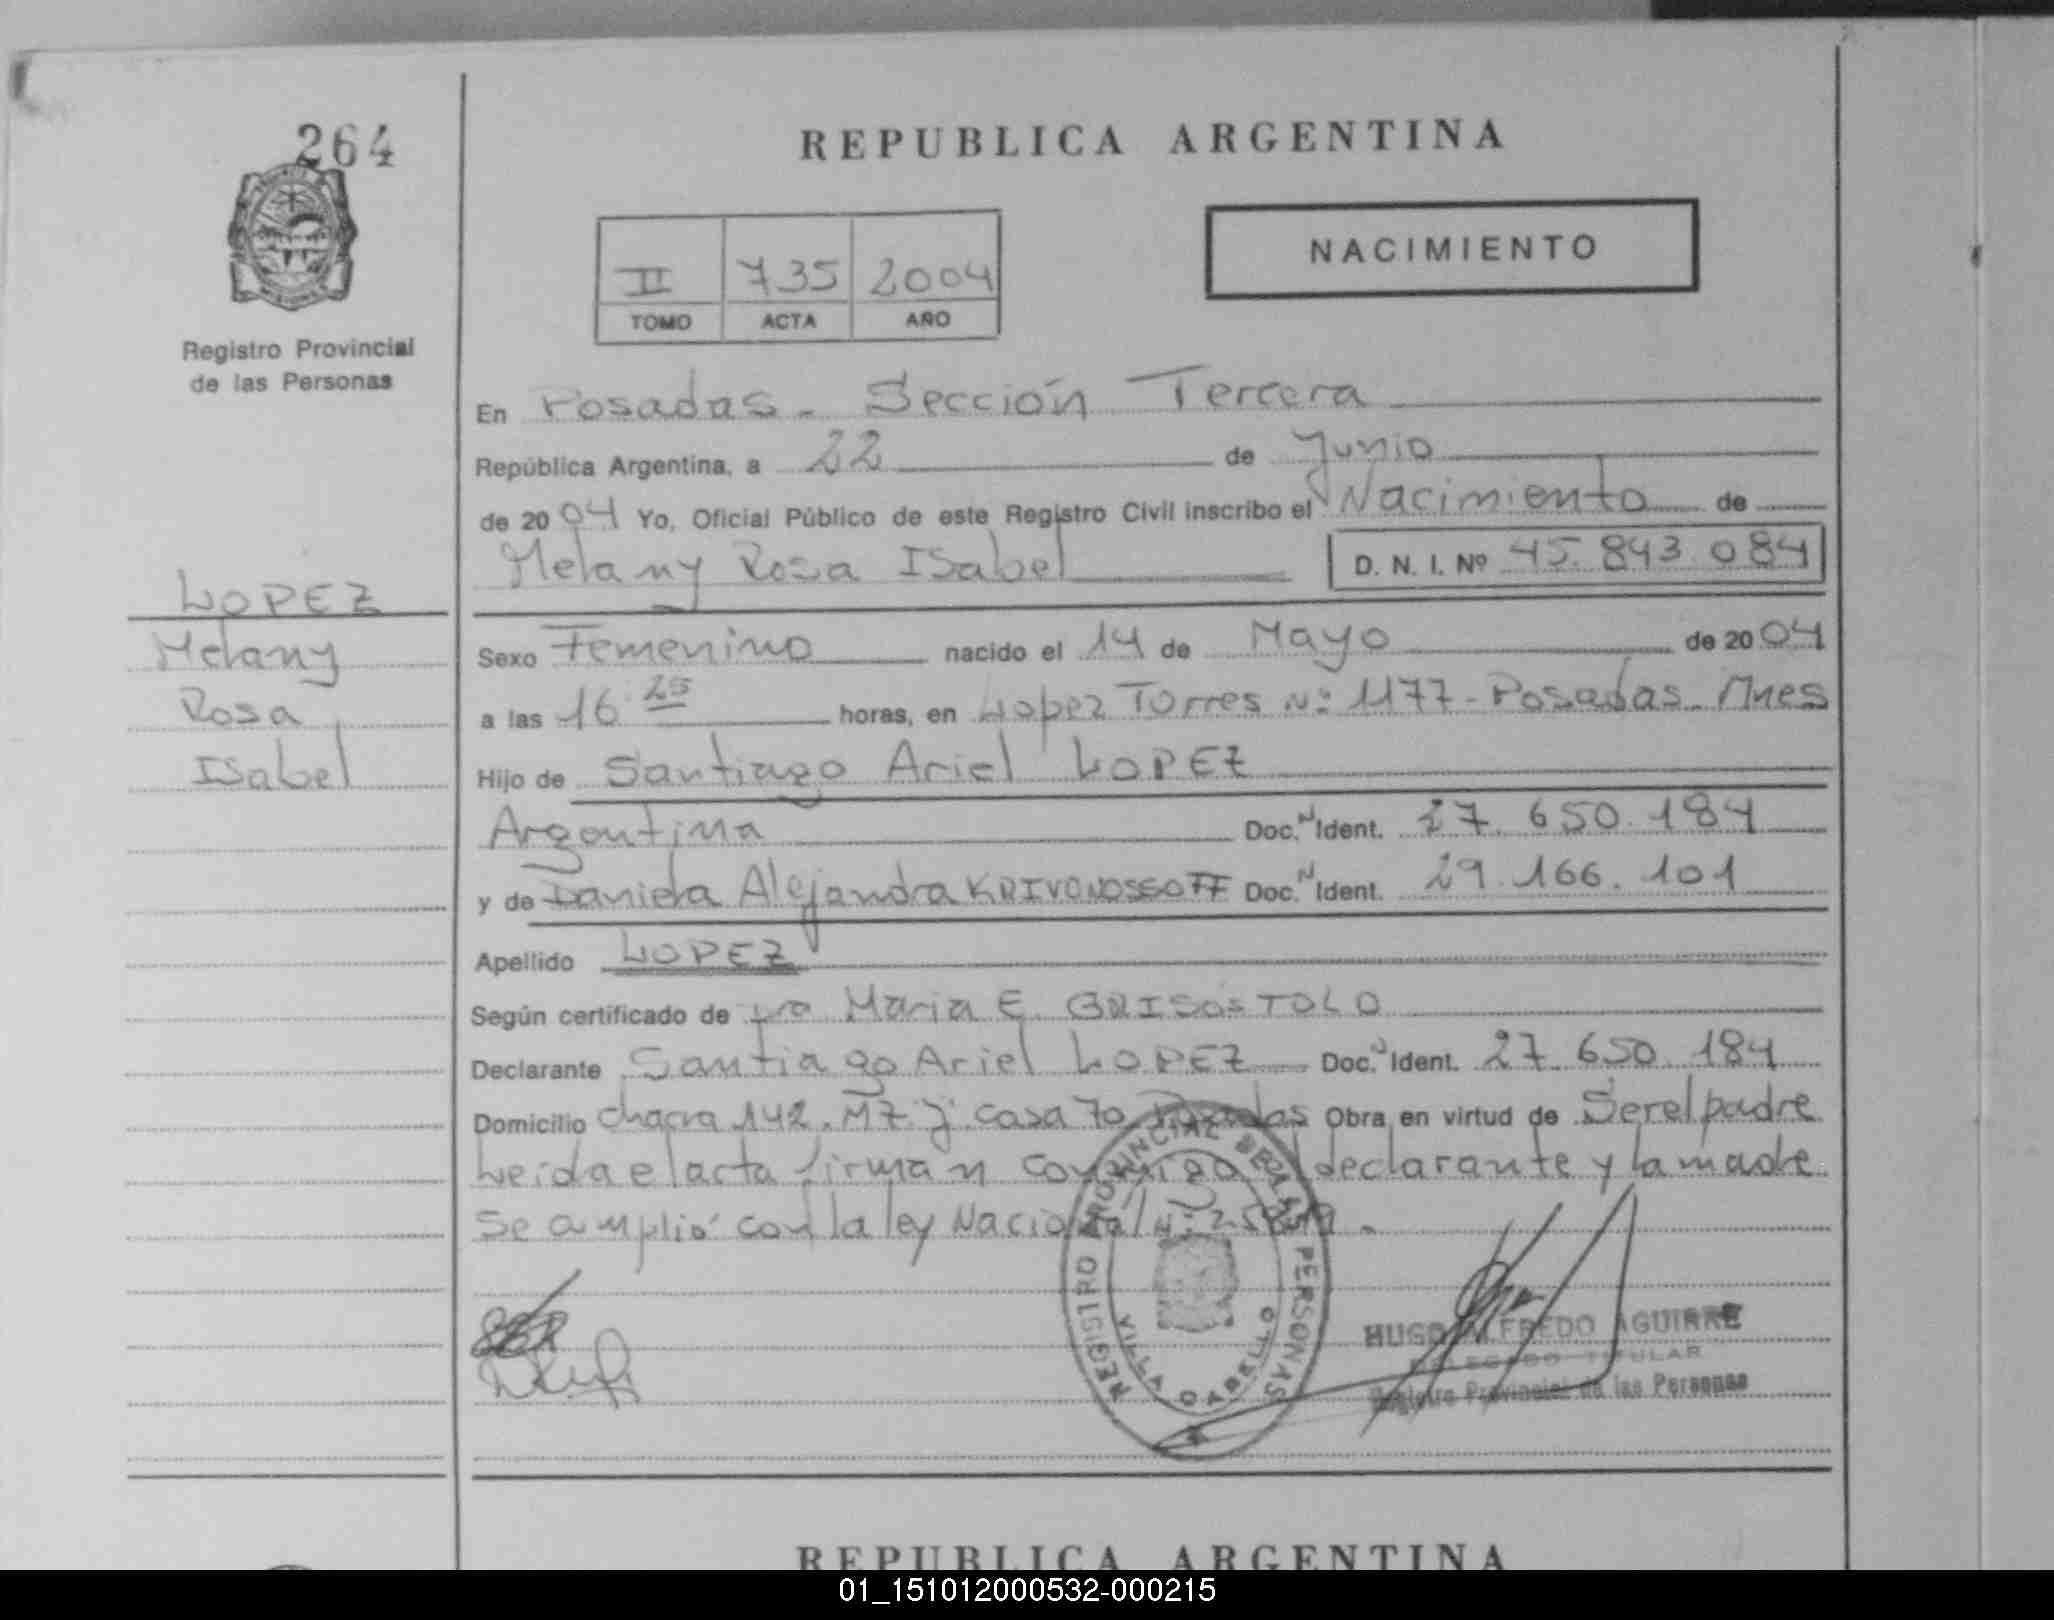 264
REPUBLICA ARGENTINA
NACIMIENTO
II 735 2004
TOMO ACTA AÑO
Registro Provincial
de las Personas
En Posadas - Sección Tercera
República Argentina, a 22 de Junio
de 2004 Yo, Oficial Público de este Registro Civil inscribo el Nacimiento de
Melany Rosa ISabel D. N. I. Nº 45.843.084
LOPEZ
Melany
Rosa
ISabel
Sexo Femenino nacido el 14 de Mayo de 2004
a las 16:25 horas, en Lopez Torres Nº 1177 - Posadas - Mnes
Hijo de Santiago Ariel LOPEZ
Argentina Doc. N Ident. 27.650.184
y de Daniela Alejandra KRIVONOSSOFF Doc. N Ident. 29.166.101
Apellido LOPEZ
Según certificado de Maria E. GRISOSTOLO
Declarante Santiago Ariel LOPEZ Doc. N Ident. 27.650.184
Domicilio chacra 142. MZ. J. casa 70 Posadas Obra en virtud de Ser el padre
Leida el acta firman conmigo el declarante y la madre
Se amplió con la ley Nacional Nº
REGISTRO PROVINCIAL DE LAS PERSONAS
VILLA CABELLO
HUGO ALFREDO AGUIRRE
DELEGADO TITULAR
Registro Provincial de las Personas
REPUBLICA ARGENTINA
01_151012000532-000215